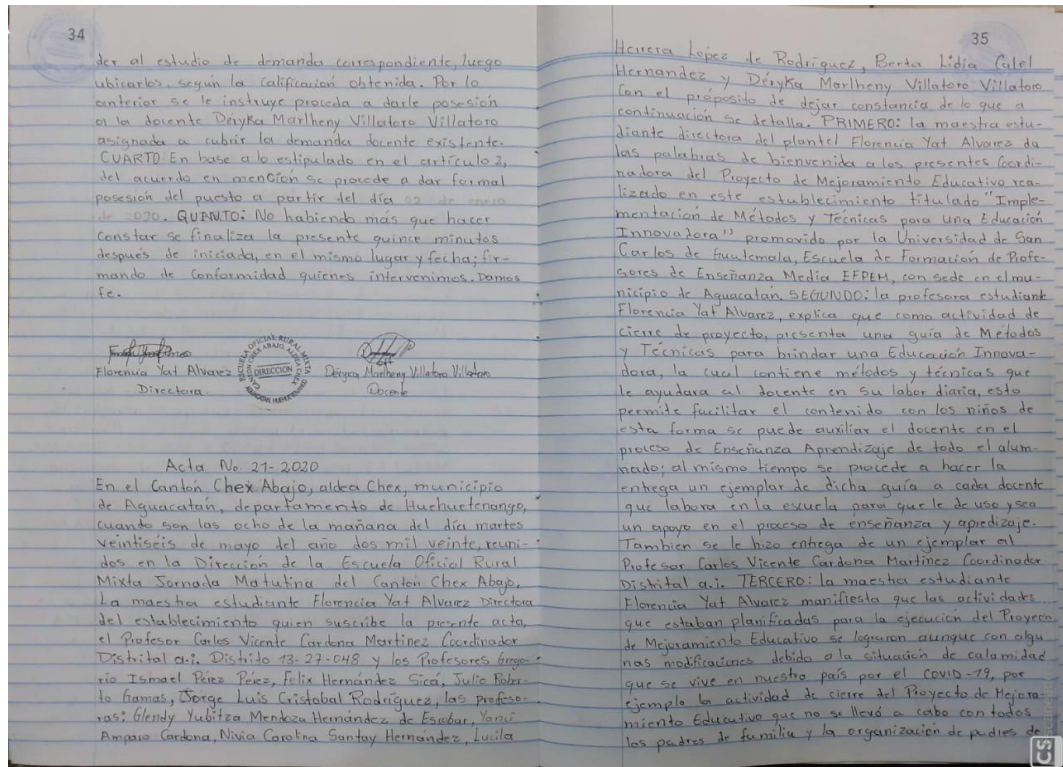 34
der al estudio de demanda correspondiente, luego
ubicarlos, según la calificación obtenida. Por lo
anterior se le instruye proceda a darle posesión
a la docente Déryka Marlheny Villatoro Villatoro
asignada a cubrir la demanda docente existente.
CUARTO: En base a lo estipulado en el artículo 3,
del acuerdo en mención se procede a dar formal
posesión del puesto a partir del día 02 de enero
de 2020. QUINTO: No habiendo más que hacer
constar se finaliza la presente quince minutos
después de iniciada, en el mismo lugar y fecha; fir-
mando de conformidad quienes intervenimos. Damos
fe.
Florencia Yat Alvarez
Directora
ESCUELA OFICIAL RURAL MIXTA
DIRECCION
Déryca Marlheny Villatoro Villatoro
Docente
Acta No. 21-2020
En el Cantón Chex Abajo, aldea Chex, municipio
de Aguacatán, departamento de Huehuetenango,
cuando son las ocho de la mañana del día martes
veintiséis de mayo del año dos mil veinte, reuni-
dos en la Dirección de la Escuela Oficial Rural
Mixta Jornada Matutina del Cantón Chex Abajo,
La maestra estudiante Florencia Yat Alvarez Directora
del establecimiento quien suscribe la presente acta,
el Profesor Carlos Vicente Cardona Martínez Coordinador
Distrital a.i. Distrito 13-27-048 y los Profesores Grego-
rio Ismael Pérez Pérez, Felix Hernández Sicá, Julio Rober-
to Gamas, Jorge Luis Cristobal Rodríguez, las profeso-
ras: Glendy Yubitza Mendoza Hernández de Escobar, Yanui
Amparo Cardona, Nivia Carolina Santay Hernández, Lucila
35
Herrera López de Rodríguez, Berta Lidia Calel
Hernandez y Déryka Marlheny Villatoro Villatoro
Con el propósito de dejar constancia de lo que a
continuación se detalla. PRIMERO: la maestra estu-
diante directora del plantel Florencia Yat Alvarez da
las palabras de bienvenida a los presentes Coordi-
nadora del Proyecto de Mejoramiento Educativo rea-
lizado en este establecimiento titulado "Imple-
mentación de Métodos y Técnicas para una Educación
Innovadora" promovido por la Universidad de San
Carlos de Guatemala, Escuela de Formación de Profe-
sores de Enseñanza Media EFPEM, con sede en el mu-
nicipio de Aguacatán. SEGUNDO: la profesora estudiante
Florencia Yat Alvarez, explica que como actividad de
cierre de proyecto, presenta una guía de Métodos
y Técnicas para brindar una Educación Innova-
dora, la cual contiene métodos y técnicas que
le ayudara al docente en su labor diaria, esto
permite facilitar el contenido con los niños de
esta forma se puede auxiliar el docente en el
proceso de Enseñanza Aprendizaje de todo el alum-
nado; al mismo tiempo se procede a hacer la
entrega un ejemplar de dicha guía a cada docente
que labora en la escuela para que le de uso y sea
un apoyo en el proceso de enseñanza y apredizaje.
Tambien se le hizo entrega de un ejemplar al
Profesor Carlos Vicente Cardona Martínez Coordinador
Distrital a.i. TERCERO: la maestra estudiante
Florencia Yat Alvarez manifiesta que las actividades
que estaban planificadas para la ejecución del Proyecto
de Mejoramiento Educativo se lograron aunque con algu
nas modificaciones debido a la situación de calamidad
que se vive en nuestro país por el COVID-19, por
ejemplo la actividad de cierre del Proyecto de Mejora
miento Educativo que no se llevó a cabo con todos
los padres de familia y la organización de padres de
CS